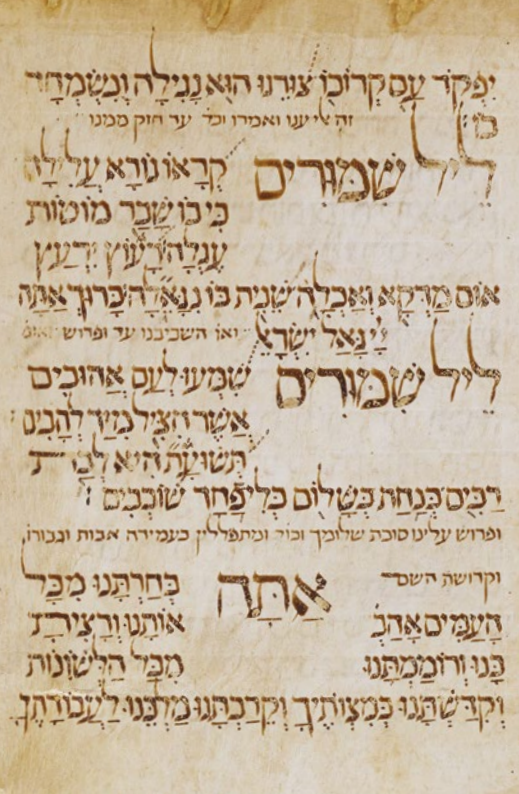 יִפְקוֹד עַם קְרוֹבוֹ צוּרֵנוּ הוּא נָגִילָה וְנִשְׂמְחָה
בו׳ זה אלי ענו ואמרו וכו׳ עד חזק ממנו
לֵיל שִׁמּוּרִים קְרָאוֹ נוֹרָא עֲלִילָה
כִּי בוֹ שָׁבַר מוֹטוֹת
עֶגְלָה
אוֹם שֵׁנִית בּוֹ נִגְאָלָה בָּרוּךְ אַתָּה
יְיָ גָּאַל יִשְׂרָאֵל ואו׳ השכיבנו עד ופרוש
לֵיל שִׁמּוּרִים שִׁמְעוּ לְעַם אֲהוּבִים
אֲשֶׁר הִצִּיל מִיַּד לְהָבִים
תְּשׁוּעָת הִיא
רַבִּים בְּנַחַת בְּשָׁלוֹם בְּלִי פַחַד שׁוֹכְבִים׃
ופרוש עלינו סוכת שלומך וכו׳ ומתפללין בעמידה אבות וגבורו׳
וקדושת השם׳ אַתָּה בְחַרְתָּנוּ מִכָּל
הָעַמִּים אָהַבְ׳ אוֹתָנוּ וְרָצִיתָ
בָּנוּ וְרוֹמַמְתָּנוּ מִכָּל הַלְּשׁוֹנוֹת
וְקִדַּשְׁתָּנוּ בְּמִצְוֹתֶיךָ וְקֵרַבְתָּנוּ מַלְכֵּנוּ לַעֲבוֹדָתֶךָ